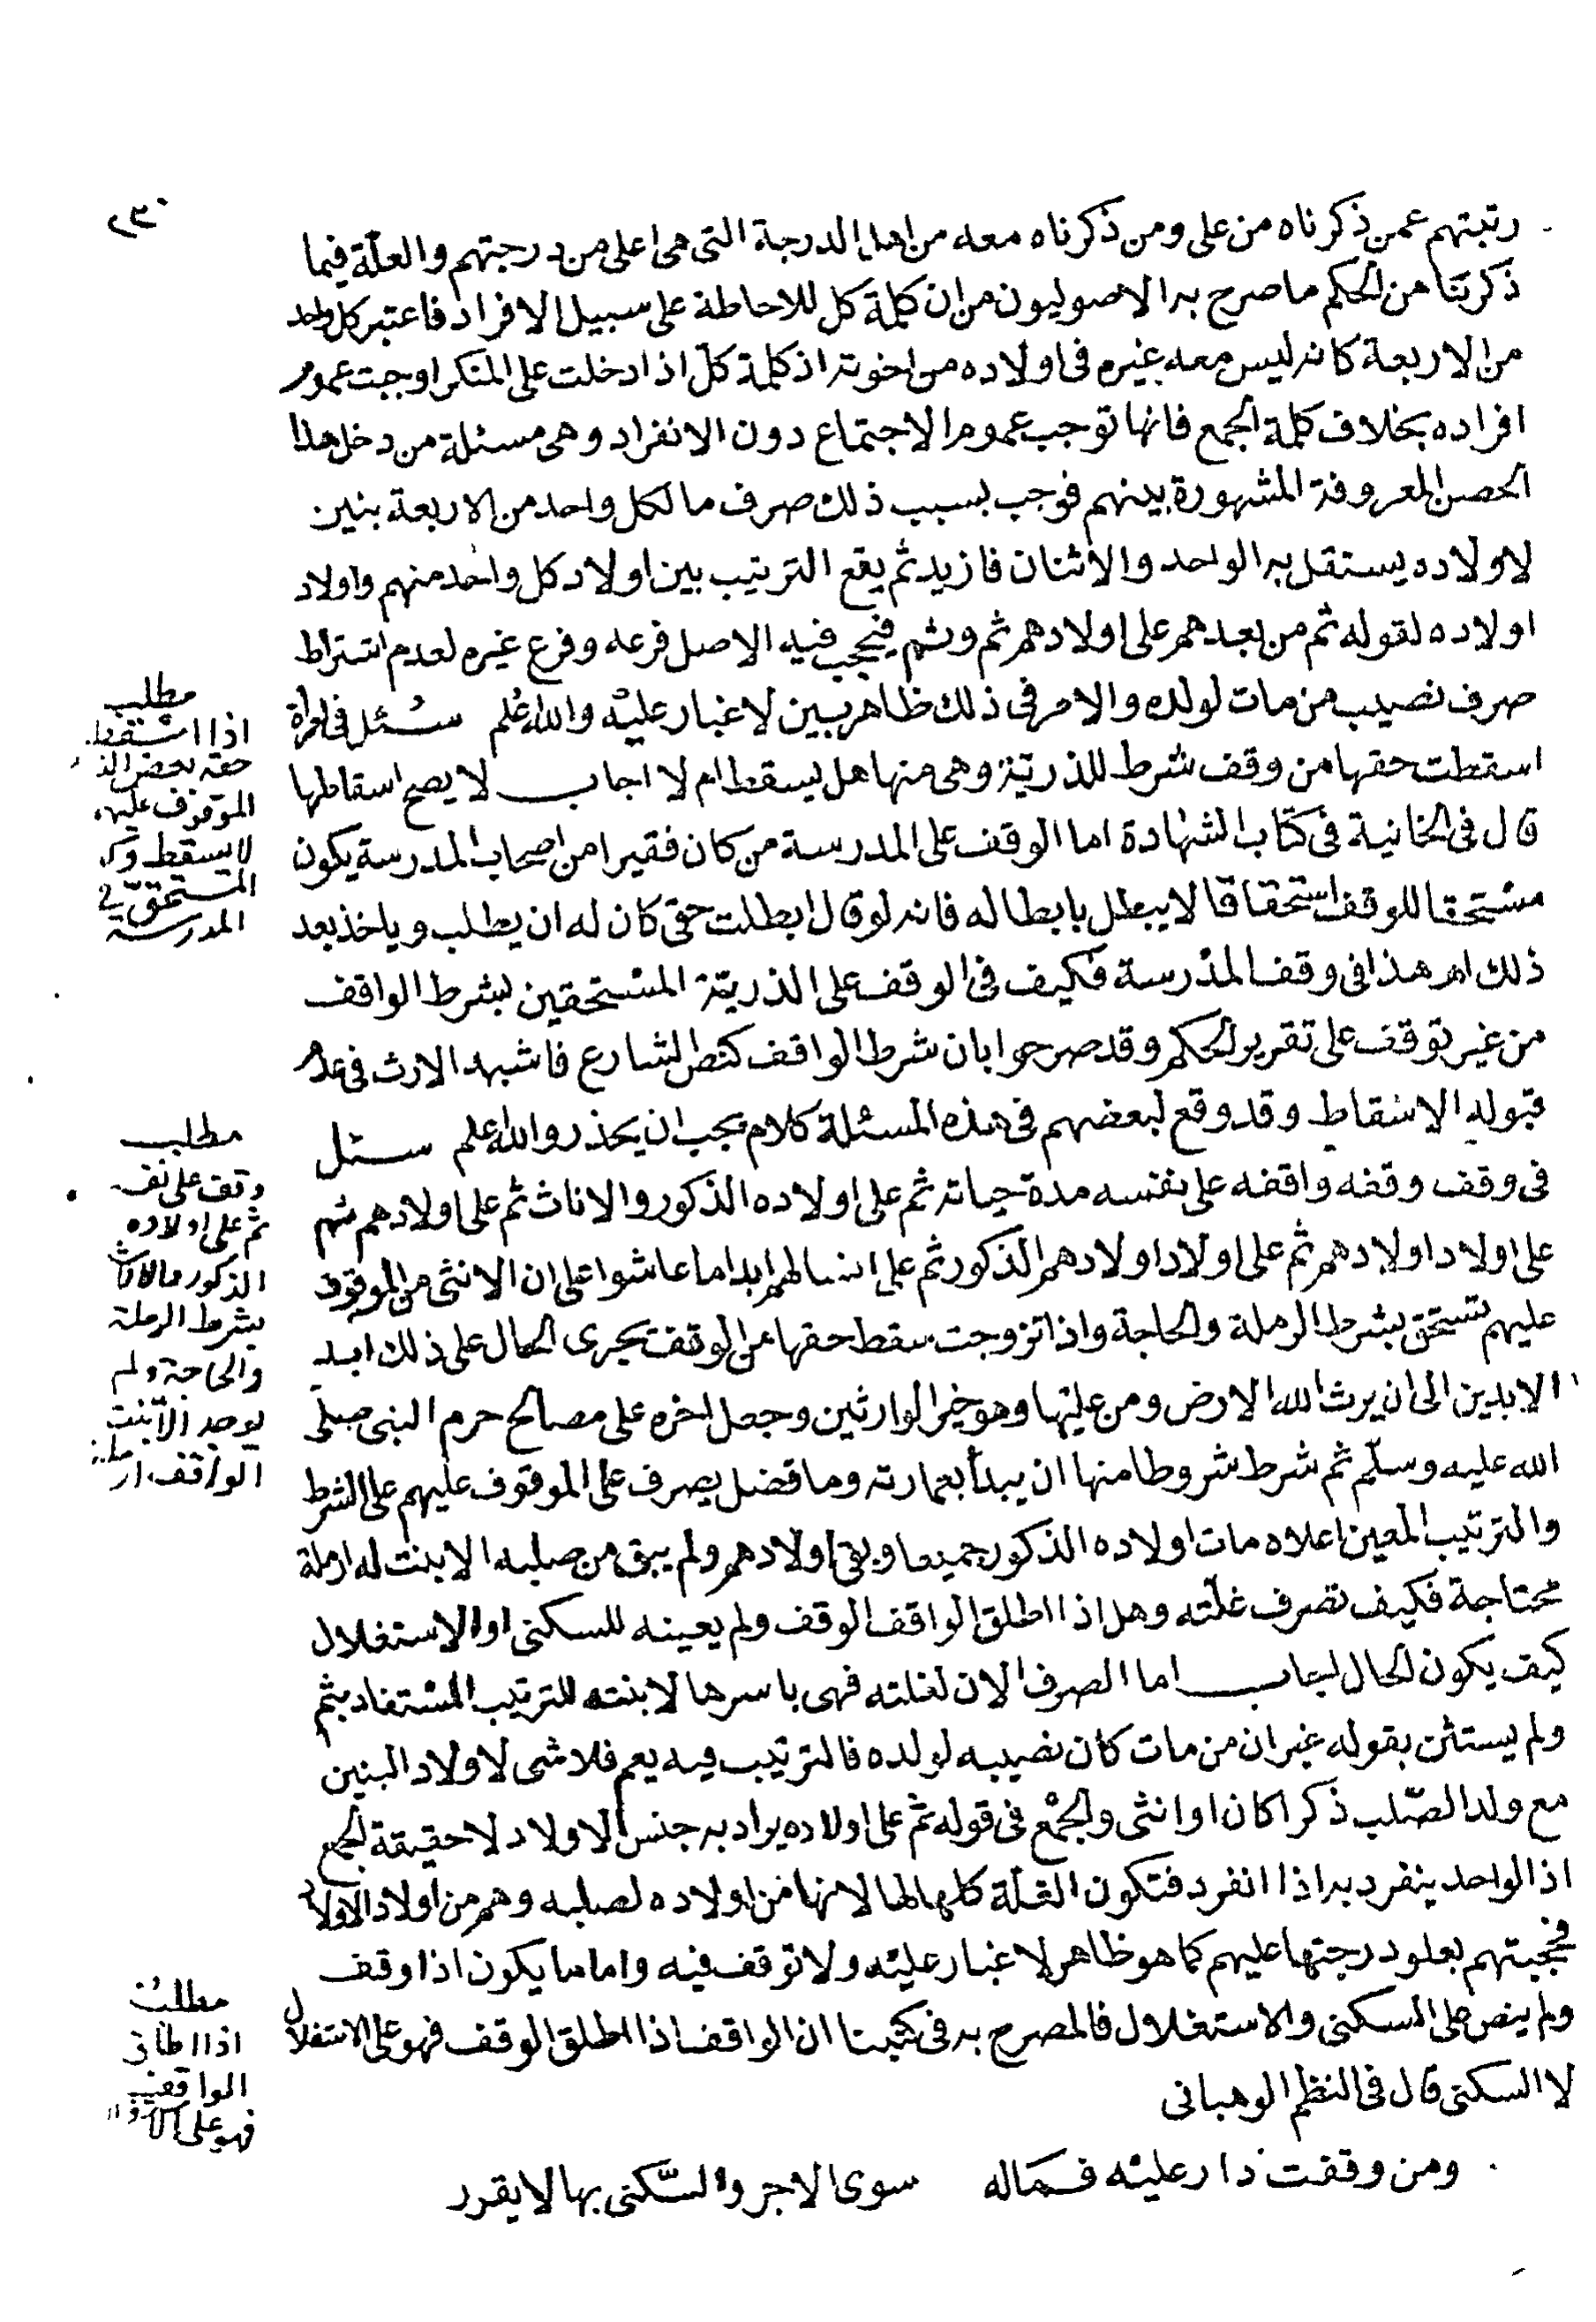 ٢٣٠
رتبتهم عمن ذكرناه من على ومن ذكرناه معه من اهل الدرجة التى هى اعلى من درجتهم والعلّة فيما
ذكرنا من الحكم ما صرح به الاصوليون من ان كلمة كل للاحاطة على سبيل الافراد فاعتبر كل واحد
من الاربعة كانه ليس معه غيره فى اولاده من اخوته اذ كلمة كلّ اذا دخلت على المنكر اوجبت عموم
افراده بخلاف كلمة الجمع فانها توجب عموم الاجتماع دون الانفراد وهى مسئلة من دخل هذا
الحصن المعروفة المشهورة بينهم فوجب بسبب ذلك صرف ما لكل واحد من الاربعة بنين
لاولاده يستقل به الواحد والاثنان فازيد ثم يقع الترتيب بين اولاد كل واحد منهم واولاد
اولاده لقوله ثم من بعدهم على اولادهم ثم وثم فيحجب فيه الاصل فرعه وفرع غيره لعدم اشتراط
صرف نصيب من مات لولده والامر فى ذلك ظاهر بين لا غبار عليه والله اعلم سئل فى امراة
اسقطت حقها من وقف شرط للذريّة وهى منها هل يسقط ام لا اجاب لا يصح اسقاطها
قال فى الخانية فى كتاب الشهادة اما الوقف على المدرسة من كان فقيرا من اصحاب المدرسة يكون
مستحقا للوقف استحقاقا لا يبطل بابطاله فانه لو قال ابطلت حقى كان له ان يطلب وياخذ بعد
ذلك اهـ هذا فى وقف المدرسة فكيف فى الوقف على الذريّة المستحقين بشرط الواقف
من غير توقف على تقرير الحكم وقد صرحوا بان شرط الواقف كنص الشارع فاشبه الارث فى عدم
قبوله الاسقاط وقد وقع لبعضهم فى هذه المسئلة كلام يجب ان يحذر والله اعلم سئل
فى وقف وقفه واقفه على نفسه مدة حياته ثم على اولاده الذكور والاناث ثم على اولادهم ثم
على اولاد اولادهم ثم على اولاد اولادهم الذكور ثم على انسالهم ابدا ما عاشوا على ان الانثى من الموقوف
عليهم تستحق بشرط الرملة والحاجة واذا تزوجت سقط حقها من الوقف يجرى الحال على ذلك ابد
الابدين الى ان يرث الله الارض ومن عليها وهو خير الوارثين وجعل اخره على مصالح حرم النبى صلّى
الله عليه وسلّم ثم شرط شروطا منها ان يبدأ بعمارته وما فضل يصرف على الموقوف عليهم على الشرط
والترتيب المعين اعلاه مات اولاده الذكور جميعا وبقى اولادهم ولم يبق من صلبه الا بنت له ارملة
محتاجة فكيف تصرف غلّته وهل اذا اطلق الواقف الوقف ولم يعينه للسكنى او الاستغلال
كيف يكون الحال اجاب اما الصرف الان لغلته فهى باسرها لابنته للترتيب المستفاد بثم
ولم يستثن بقوله غير ان من مات كان نصيبه لولده فالترتيب فيه يعم فلا شى لاولاد البنين
مع ولد الصّلب ذكرا كان او انثى والجمع فى قوله ثم على اولاده يراد به جنس الاولاد لا حقيقة الجمع
اذ الواحد ينفرد به اذا انفرد فتكون الغلّة كلها لها لانها من اولاده لصلبه وهم من اولاد الاولاد
فحجبتهم بعلو درجتها عليهم كما هو ظاهر لا غبار عليه ولا توقف فيه واما ما يكون اذا وقف
ولم ينص على السكنى والاستغلال فالمصرح به فى كتبنا ان الواقف اذا اطلق الوقف فهو على الاستغلال
لا السكنى قال فى النظم الوهبانى
ومن وقفت دار عليه فماله سوى الاجر والسّكنى بها لا يقرر
مطلب
اذا اسقط
حقه بعض
الموقوف عليهم
لا يسقط
المستحق فى
المدرسة
مطلب
وقف على نفسه
ثم على اولاده
الذكور والاناث
بشرط الرملة
والحاجة ولم
يوجد الا بنت
الواقف ارملة
مطلب
اذا اطلق
الواقف
فهو على